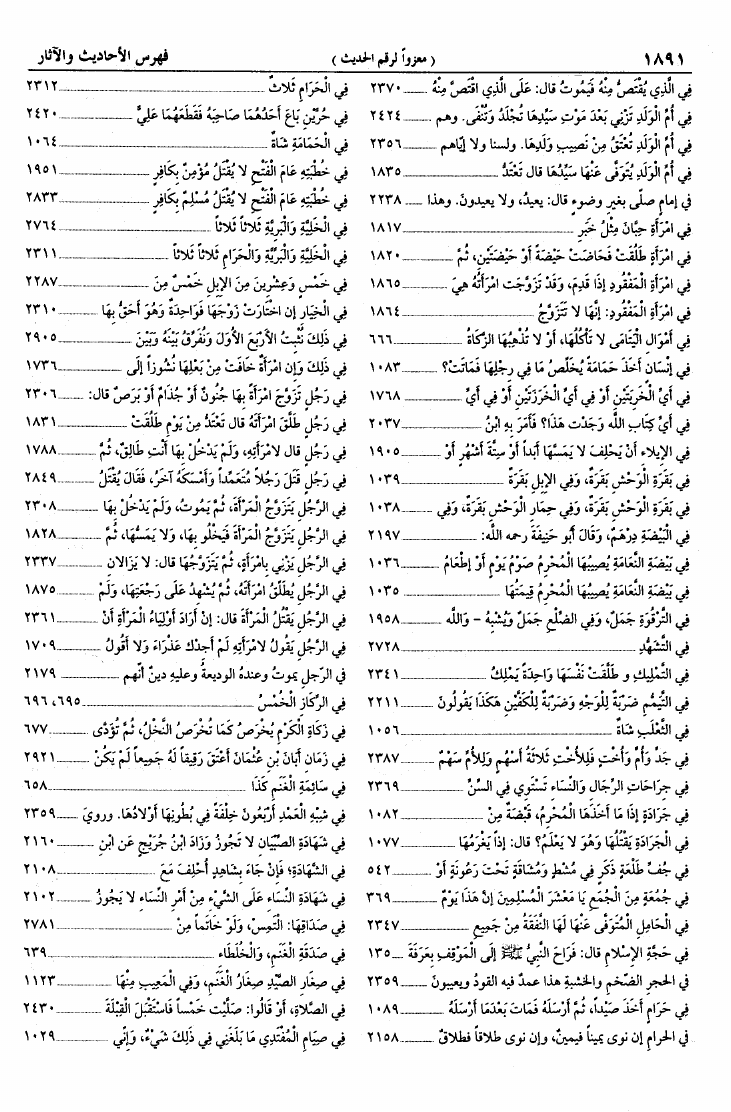 ١٨٩١
( معزواً لرقم الحديث )
فهرس الأحاديث والآثار
فِي الَّذِي يُقْتَصُّ مِنْهُ فَيَمُوتُ قال: عَلَى الَّذِي اقْتَصَّ مِنْهُ ٢٣٧٠
فِي أُمِّ الْوَلَدِ تَزْنِي بَعْدَ مَوْتِ سَيِّدِهَا تُجْلَدُ وَتُنْفَى. وهم ٢٤٢٤
فِي أُمِّ الْوَلَدِ تُعْتَقُ مِنْ نَصِيبِ وَلَدِهَا. ولسنا ولا إياهم ٢٣٥٦
فِي أُمِّ الْوَلَدِ يُتَوَفَّى عَنْهَا سَيِّدُهَا قال تَعْتَدُّ ١٨٣٥
في إمامٍ صلّى بغير وضوءٍ قال: يعيدُ، ولا يعيدونَ. وهذا ٢٢٣٨
فِي امْرَأَةِ حِبَّانَ مِثْلُ خَبَرِ ١٨١٧
فِي امْرَأَةٍ طَلُقَتْ فَحَاضَتْ حَيْضَةً أَوْ حَيْضَتَيْنِ، ثُمَّ ١٨٢٠
فِي امْرَأَةِ الْمَفْقُودِ إِذَا قَدِمَ، وَقَدْ تَزَوَّجَتِ امْرَأَتُهُ هِيَ ١٨٦٥
فِي امْرَأَةِ الْمَفْقُودِ: إنَّهَا لَا تَتَزَوَّجُ ١٨٦٤
فِي أَمْوَالِ الْيَتَامَى لَا تَأْكُلُهَا، أَوْ لَا تُذْهِبُهَا الزَّكَاةُ ٦٦٦
فِي إِنْسَانٍ أَخَذَ حَمَامَةً يُخَلِّصُ مَا فِي رِجْلِهَا فَمَاتَتْ؟ ١٠٨٣
فِي أَيِّ الْخُرْبَتَيْنِ أَوْ فِي أَيِّ الْخَرَزَتَيْنِ أَوْ فِي أَيِّ ١٧٦٨
فِي أَيِّ كِتَابِ اللَّهِ وَجَدْتَ هَذَا؟ فَأَمَرَ بِهِ ابْنُ ٢٠٣٧
فِي الإِيلَاءِ أَنْ يَحْلِفَ لا يَمَسَّهَا أَبَداً أَوْ سِتَّةَ أَشْهُرٍ أَوْ ١٩٠٥
فِي بَقَرَةِ الْوَحْشِ بَقَرَةٌ، وَفِي الإِبِلِ بَقَرَةٌ ١٠٣٩
فِي بَقَرَةِ الْوَحْشِ بَقَرَةٌ، وَفِي حِمَارِ الْوَحْشِ بَقَرَةٌ، وَفِي ١٠٣٨
فِي الْبَيْضَةِ دِرْهَمٌ، وَقَالَ أَبُو حَنِيفَةَ رحمه الله: ٢١٩٧
فِي بَيْضَةِ النَّعَامَةِ يُصِيبُهَا الْمُحْرِمُ صَوْمُ يَوْمٍ أَوْ إطْعَامُ ١٠٣٦
فِي بَيْضَةِ النَّعَامَةِ يُصِيبُهَا الْمُحْرِمُ قِيمَتُهَا ١٠٣٥
فِي التَّرْقُوَةِ جَمَلٌ، وَفِي الضِّلْعِ جَمَلٌ وَيُشْبِهُ - وَاللَّه ١٩٥٨
فِي التَّشَهُّدِ ٢٧٢٨
فِي التَّمْلِيكِ و طَلَّقَتْ نَفْسَهَا وَاحِدَةً يَمْلِكُ ٢٣٤١
فِي التَّيَمُّمِ ضَرْبَةٌ لِلْوَجْهِ وَضَرْبَةٌ لِلْكَفَّيْنِ هَكَذَا يَقُولُونَ ٢٢١١
فِي الثَّعْلَبِ شَاةٌ ١٠٥٦
فِي جَدٍّ وَأُمٍّ وَأُخْتٍ، فَلِلأُخْتِ ثَلاثَةُ أَسْهُمٍ وَلِلأُمِّ سَهْمٌ ٢٣٨٧
فِي جِرَاحَاتِ الرِّجَالِ وَالنِّسَاءِ تَسْتَوِي فِي السِّنِّ ٢٣٦٩
فِي جَرَادَةٍ إِذَا مَا أَخَذَهَا الْمُحْرِمُ، قَبْضَةٌ مِنْ ١٠٨٢
فِي الْجَرَادَةِ يَقْتُلُهَا وَهُوَ لا يَعْلَمُ؟ قال: إِذاً يَغْرَمُهَا ١٠٧٧
فِي جُفِّ طَلْعَةِ ذَكَرٍ فِي مُشْطٍ وَمُشَاقَةٍ تَحْتَ رَعُونَةٍ أَوْ ٥٤٢
فِي جُمُعَةٍ مِنَ الْجُمَعِ يَا مَعْشَرَ الْمُسْلِمِينَ إِنَّ هَذَا يَوْمٌ ٣٦٩
فِي الْحَامِلِ الْمُتَوَفَّى عَنْهَا لَهَا النَّفَقَةُ مِنْ جَمِيعِ ٢٣٤٧
فِي حَجَّةِ الإِسْلامِ قال: فَرَاحَ النَّبِيُّ ﷺ إِلَى الْمَوْقِفِ بِعَرَفَةَ ١٣٥
في الحجر الضّخم والخشبةِ هذا عمدٌ فيه القودُ ويعيبونَ ٢٣٥٩
فِي حَرَامٍ أَخَذَ صَيْداً، ثُمَّ أَرْسَلَهُ فَمَاتَ بَعْدَمَا أَرْسَلَهُ ١٠٨٩
في الحرامِ إن نوى يميناً فيمينٌ، وإن نوى طلاقاً فطلاقٌ ٢١٥٨
فِي الْحَرَامِ ثَلاثٌ ٢٣١٢
فِي حُرَّيْنِ بَاعَ أَحَدُهُمَا صَاحِبَهُ فَقَطَعَهُمَا عَلِيٌّ ٢٤٢٠
فِي الْحَمَامَةِ شَاةٌ ١٠٦٤
فِي خُطْبَتِهِ عَامَ الْفَتْحِ لا يُقْتَلُ مُؤْمِنٌ بِكَافِرٍ ١٩٥١
فِي خُطْبَتِهِ عَامَ الْفَتْحِ لا يُقْتَلُ مُسْلِمٌ بِكَافِرٍ ٢٨٣٣
فِي الْخَلِيَّةِ وَالْبَرِيَّةِ ثَلاثاً ثَلاثاً ٢٧٦٤
فِي الْخَلِيَّةِ وَالْبَرِيَّةِ وَالْحَرَامِ ثَلاثاً ثَلاثاً ٢٣١١
فِي خَمْسٍ وَعِشْرِينَ مِنَ الإِبِلِ خَمْسٌ مِنَ ٢٢٨٧
فِي الْخِيَارِ إن اخْتَارَتْ زَوْجَهَا فَوَاحِدَةٌ وَهُوَ أَحَقُّ بِهَا ٢٣١٠
فِي ذَلِكَ نُثْبِتُ الأَرْبَعَ الأُوَلَ وَنُفَرِّقُ بَيْنَهُ وَبَيْنَ ٢٩٠٥
فِي ذَلِكَ وَإِن امْرَأَةٌ خَافَتْ مِنْ بَعْلِهَا نُشُوزاً إِلَى ١٧٣٦
فِي رَجُلٍ تَزَوَّجَ امْرَأَةً بِهَا جُنُونٌ أَوْ جُذَامٌ أَوْ بَرَصٌ قال: ٢٣٠٦
فِي رَجُلٍ طَلَّقَ امْرَأَتَهُ قال تَعْتَدُّ مِنْ يَوْمِ طَلُقَتْ ١٨٣١
فِي رَجُلٍ قال لامْرَأَتِهِ، وَلَمْ يَدْخُلْ بِهَا أَنْتِ طَالِقٌ، ثُمَّ ١٧٨٨
فِي رَجُلٍ قَتَلَ رَجُلاً مُتَعَمِّداً وَأَمْسَكَهُ آخَرُ، فَقَالَ يُقْتَلُ ٢٨٤٩
فِي الرَّجُلِ يَتَزَوَّجُ الْمَرْأَةَ، ثُمَّ يَمُوتُ، وَلَمْ يَدْخُلْ بِهَا ٢٣٠٨
فِي الرَّجُلِ يَتَزَوَّجُ الْمَرْأَةَ فَيَخْلُو بِهَا، وَلا يَمَسُّهَا، ثُمَّ ١٨٢٨
فِي الرَّجُلِ يَزْنِي بِامْرَأَةٍ، ثُمَّ يَتَزَوَّجُهَا قال: لا يَزَالان ٢٣٣٧
فِي الرَّجُلِ يُطَلِّقُ امْرَأَتَهُ، ثُمَّ يُشْهِدُ عَلَى رَجْعَتِهَا، وَلَمْ ١٨٧٥
فِي الرَّجُلِ يَقْتُلُ الْمَرْأَةَ قال: إِنْ أَرَادَ أَوْلِيَاءُ الْمَرْأَةِ أَنْ ٢٣٦١
فِي الرَّجُلِ يَقُولُ لامْرَأَتِهِ لَمْ أَجِدْكِ عَذْرَاءَ وَلا أَقُولُ ١٧٠٩
في الرّجلِ يموتُ وعندهُ الوديعةُ وعليهِ دينٌ أنّهم ٢١٧٩
فِي الرِّكَازِ الْخُمْسُ ٦٩٥، ٦٩٦
فِي زَكَاةِ الْكَرْمِ يُخْرَصُ كَمَا تُخْرَصُ النَّخْلُ، ثُمَّ تُؤَدَّى ٦٧٧
فِي زَمَانِ أَبَانَ بْنِ عُثْمَانَ أَعْتَقَ رَقِيقاً لَهُ جَمِيعاً لَمْ يَكُنْ ٢٩٢١
فِي سَائِمَةِ الْغَنَمِ كَذَا ٦٥٨
فِي شِبْهِ الْعَمْدِ أَرْبَعُونَ خِلْفَةً فِي بُطُونِهَا أَوْلادُهَا. ورويَ ٢٣٥٩
فِي شَهَادَةِ الصِّبْيَانِ لا تَجُوزُ وَزَادَ ابْنُ جُرَيْجٍ عَن ابْنِ ٢١٦٠
فِي الشَّهَادَةِ؛ فَإِنْ جَاءَ بِشَاهِدٍ أُحْلِفَ مَعَ ٢١٠٨
فِي شَهَادَةِ النِّسَاءِ عَلَى الشَّيْءِ مِنْ أَمْرِ النِّسَاءِ لا يَجُوزُ ٢١٠٢
فِي صَدَاقِهَا: الْتَمِسْ، وَلَوْ خَاتَماً مِنْ ٢٧٨١
فِي صَدَقَةِ الْغَنَمِ، وَالْخُلَطَاءِ ٦٣٩
فِي صِغَارِ الصَّيْدِ صِغَارُ الْغَنَمِ، وَفِي الْمَعِيبِ مِنْهَا ١١٢٣
فِي الصَّلاةِ، أَوْ قَالُوا: صَلَّيْتَ خَمْساً فَاسْتَقْبَلَ الْقِبْلَةَ ٢٤٣٠
فِي صِيَامِ الْمُفْتَدِي مَا بَلَغَنِي فِي ذَلِكَ شَيْءٌ، وَإِنِّي ١٠٢٩